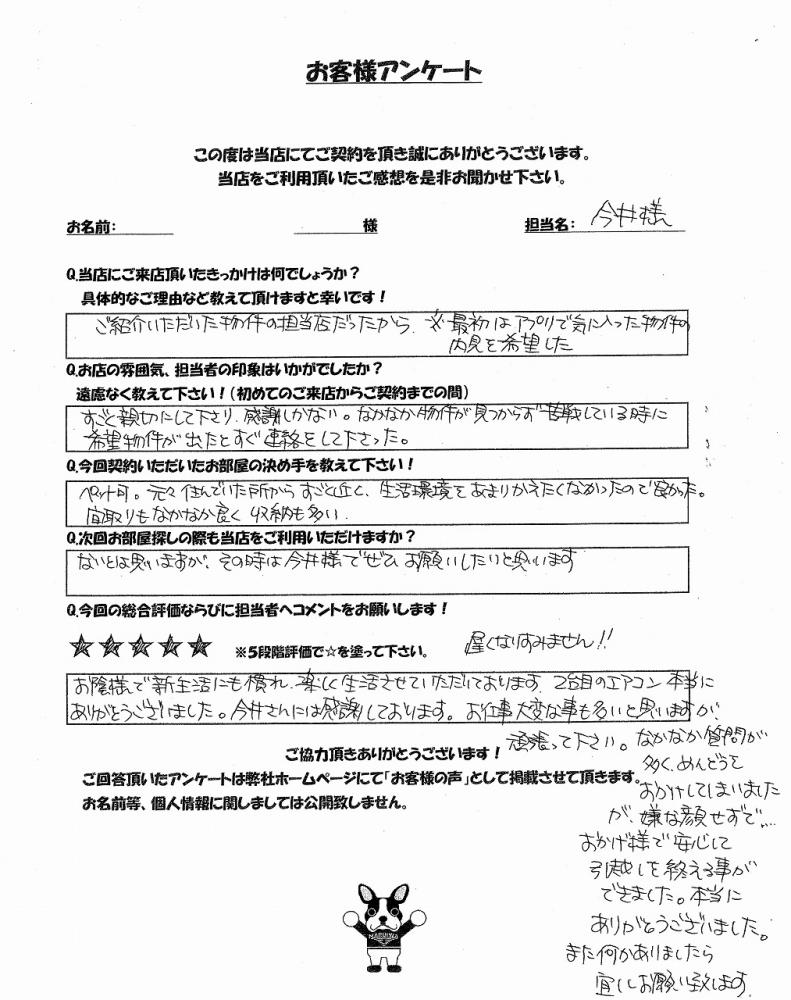 お客様アンケート
この度は当店にてご契約を頂き誠にありがとうございます。
当店をご利用頂いたご感想を是非お聞かせ下さい。
お名前: 様 担当名: 今井様
Q.当店にご来店頂いたきっかけは何でしょうか？
具体的なご理由など教えて頂けますと幸いです！
ご紹介いただいた物件の担当店だったから ※最初はアプリで気に入った物件の
内見を希望した
Q.お店の雰囲気、担当者の印象はいかがでしたか？
遠慮なく教えて下さい！(初めてのご来店からご契約までの間)
すごく親切にして下さり、感謝しかない。なかなか物件が見つからず苦戦している時に
希望物件が出たとすぐ連絡をして下さった。
Q.今回契約いただいたお部屋の決め手を教えて下さい！
ペット可。元々住んでいた所からすごく近く、生活環境をあまりかえたくなかったので良かった。
間取りもなかなか良く 収納も多い
Q.次回お部屋探しの際も当店をご利用いただけますか？
ないとは思いますが、その時は今井様でぜひお願いしたいと思います
Q.今回の総合評価ならびに担当者へコメントをお願いします！
★★★★★ ※5段階評価で☆を塗って下さい。 遅くなりすみません!!
お陰様で新生活にも慣れ、楽しく生活させていただいております。2台目のエアコン 本当に
ありがとうございました。今井さんには感謝しております。お仕事大変な事も多いと思いますが、
頑張って下さい。なかなか質問が
多く、めんどうを
おかけしてしまいました
が、嫌な顔せずで...
おかげ様で安心して
引越しを終える事が
できました。本当に
ありがとうございました。
また何かありましたら
宜しくお願い致します。
ご協力頂きありがとうございます！
ご回答頂いたアンケートは弊社ホームページにて「お客様の声」として掲載させて頂きます。
お名前等、個人情報に関しましては公開致しません。